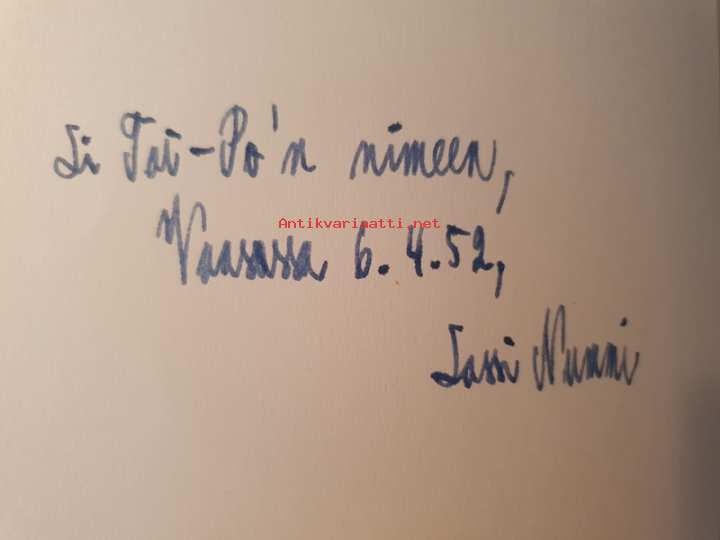 Li Tai-Po'n nimeen,
Antikvariaatti.net
Vaasassa 6.4.52,
Lassi Nummi